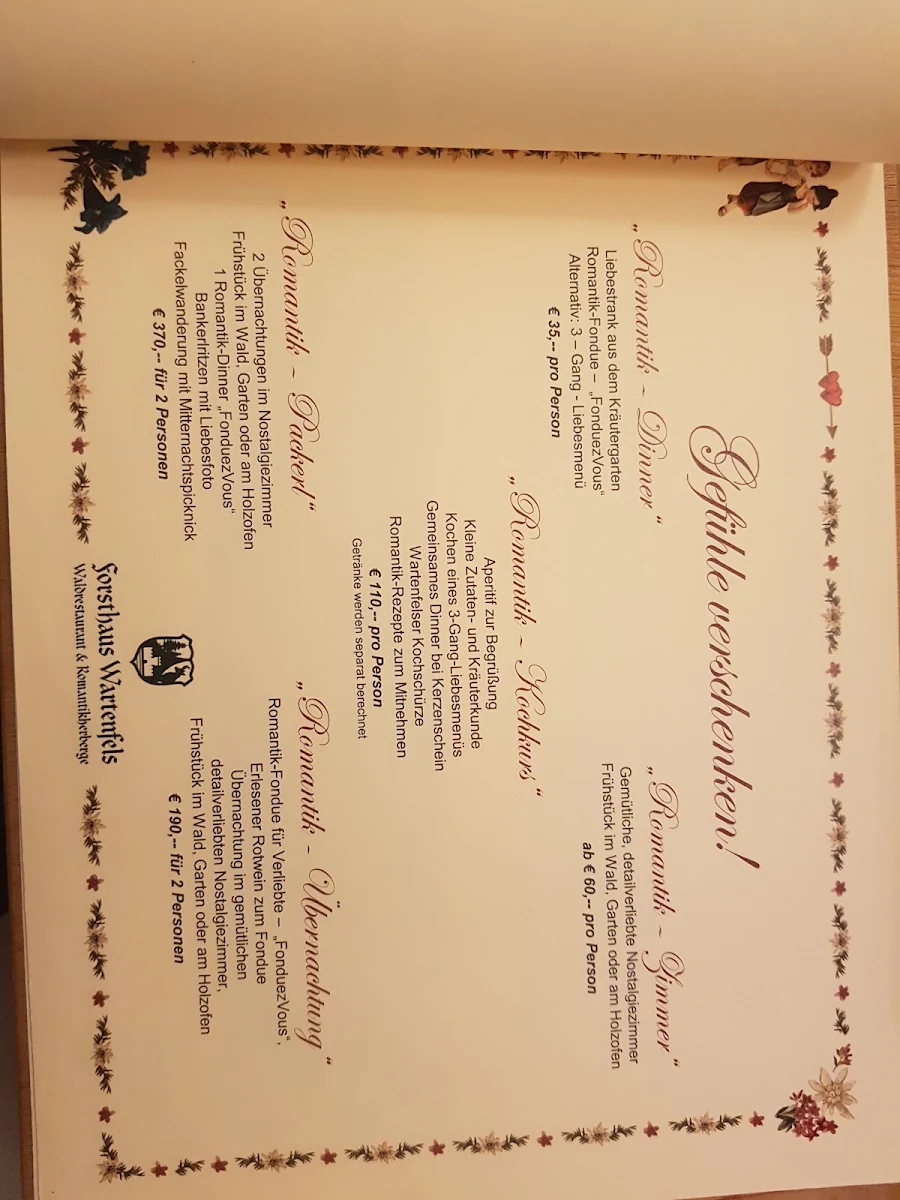 Gefühle verschenken!
„Romantik ~ Dinner“
Liebestrank aus dem Kräutergarten
Romantik-Fondue – „FonduezVous“
Alternativ: 3 – Gang - Liebesmenü
€ 35,-- pro Person
„Romantik ~ Zimmer“
Gemütliche, detailverliebte Nostalgiezimmer
Frühstück im Wald, Garten oder am Holzofen
ab € 60,-- pro Person
„Romantik ~ Kochkurs“
Aperitif zur Begrüßung
Kleine Zutaten- und Kräuterkunde
Kochen eines 3-Gang-Liebesmenüs
Gemeinsames Dinner bei Kerzenschein
Wartenfelser Kochschürze
Romantik-Rezepte zum Mitnehmen
€ 110,-- pro Person
Getränke werden separat berechnet
„Romantik ~ Packerl“
2 Übernachtungen im Nostalgiezimmer
Frühstück im Wald, Garten oder am Holzofen
1 Romantik-Dinner „FonduezVous“
Bankerlritzen mit Liebesfoto
Fackelwanderung mit Mitternachtspicknick
€ 370,-- für 2 Personen
„Romantik ~ Übernachtung“
Romantik-Fondue für Verliebte – „FonduezVous“,
Erlesener Rotwein zum Fondue
Übernachtung im gemütlichen
detailverliebten Nostalgiezimmer,
Frühstück im Wald, Garten oder am Holzofen
€ 190,-- für 2 Personen
Forsthaus Wartenfels
Waldrestaurant & Romantikherberge